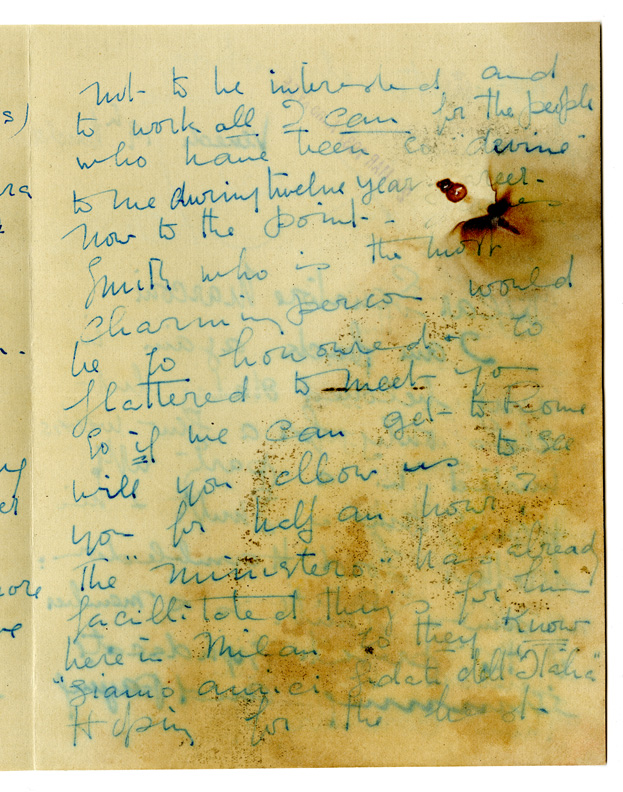 not to be interested and
to work all I can for the people
who have been so "divine"
to me during twelve years
Now to the point -
Smith who is the most
charming person would
be so honoured & to
flattered to meet you
So if we can get to Rome
will you allow us to see
you for half an hour?
The "Ministero" has already
facillitated things for him
here in Milan so they know
"siamo amici fidati dell'Italia"
Hoping for the best
s)
ore